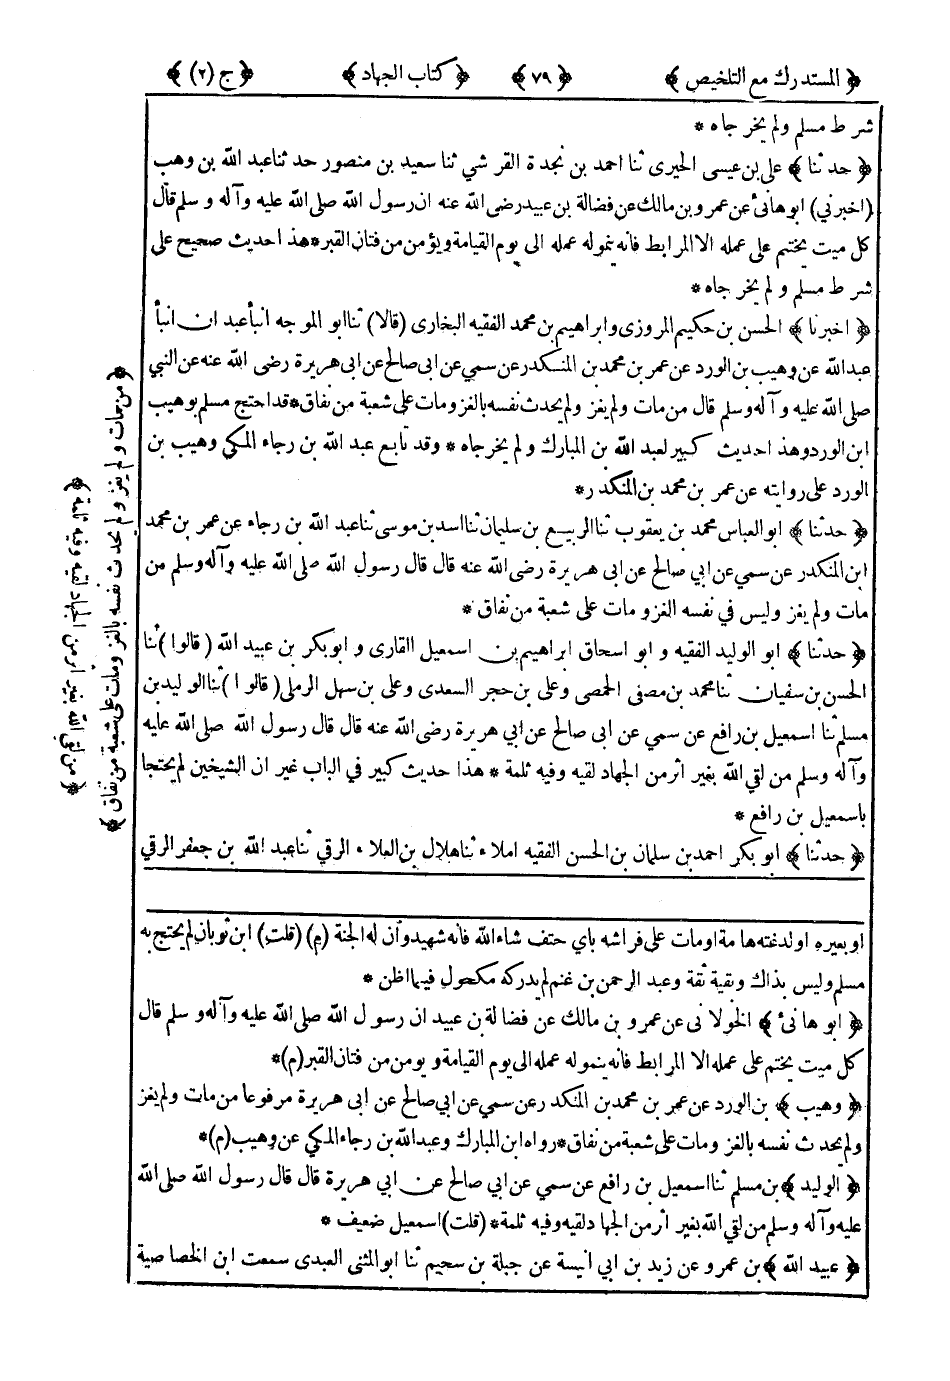 ﴿ المستدرك مع التلخيص ﴾ ﴿ ٧٩ ﴾ ﴿ كتاب الجهاد ﴾ ﴿ ج (٢) ﴾
شرط مسلم ولم يخرجاه *
﴿ حدثنا ﴾ على بن عيسى الحيرى ثنا احمد بن نجدة القرشي ثنا سعيد بن منصور حدثنا عبد الله بن وهب
(اخبرني) ابو هانئ عن عمرو بن مالك عن فضالة بن عبيد رضى الله عنه ان رسول الله صلى الله عليه وآله وسلم قال
كل ميت يختم على عمله الا المرابط فانه ينمو له عمله الى يوم القيامة ويؤمن من فتان القبر * هذا حديث صحيح على
شرط مسلم ولم يخرجاه *
﴿ اخبرنا ﴾ الحسن بن حكيم المروزى وابراهيم بن محمد الفقيه البخارى (قالا) ثنا ابو الموجه انبأ عبدان انبأ
عبد الله عن وهيب بن الورد عن عمر بن محمد بن المنكدر عن سمي عن ابى صالح عن ابى هريرة رضى الله عنه عن النبي
صلى الله عليه وآله وسلم قال من مات ولم يغز ولم يحدث نفسه بالغزو مات على شعبة من نفاق * قد احتج مسلم بوهيب
ابن الورد وهذا حديث كبير لعبد الله بن المبارك ولم يخرجاه * وقد تابع عبد الله بن رجاء المكي وهيب بن
الورد على روايته عن عمر بن محمد بن المنكدر *
﴿ حدثنا ﴾ ابو العباس محمد بن يعقوب ثنا الربيع بن سليمان ثنا اسد بن موسى ثنا عبد الله بن رجاء عن عمر بن محمد
ابن المنكدر عن سمي عن ابي صالح عن ابى هريرة رضى الله عنه قال قال رسول الله صلى الله عليه وآله وسلم من
مات ولم يغز وليس في نفسه الغزو مات على شعبة من نفاق *
﴿ حدثنا ﴾ ابو الوليد الفقيه و ابو اسحاق ابراهيم بن اسمعيل القارى و ابو بكر بن عبيد الله ( قالوا ) ثنا
الحسن بن سفيان ثنا محمد بن مصفى الحمصي وعلي بن حجر السعدى وعلى بن سهل الرملى ( قالوا ) ثنا الوليد بن
مسلم ثنا اسمعيل بن رافع عن سمي عن ابى صالح عن ابي هريرة رضى الله عنه قال قال رسول الله صلى الله عليه
وآله وسلم من لقي الله بغير اثر من الجهاد لقيه وفيه ثلمة * هذا حديث كبير في الباب غير ان الشيخين لم يحتجا
باسمعيل بن رافع *
﴿ حدثنا ﴾ ابو بكر احمد بن سلمان بن الحسن الفقيه املاء ثنا هلال بن العلاء الرقي ثنا عبد الله بن جعفر الرقي
﴿ من مات ولم يغز ولم يحدث نفسه بالغزو مات على شعبة من نفاق ﴾
﴿ من لقى الله بغير اثر من الجهاد لقيه وفيه ثلمة ﴾
او بعيره او لدغته هامة او مات على فراشه باي حتف شاء الله فانه شهيد وأن له الجنة (م) (قلت) ابن ثوبان لم يحتج به
مسلم وليس بذاك وبقية ثقة وعبد الرحمن بن غنم لم يدركه مكحول فيما اظن *
﴿ ابو هانئ ﴾ الخولانى عن عمرو بن مالك عن فضالة بن عبيد ان رسول الله صلى الله عليه وآله وسلم قال
كل ميت يختم على عمله الا المرابط فانه ينمو له عمله الى يوم القيامة ويومن من فتان القبر (م) *
﴿ وهيب ﴾ بن الورد عن عمر بن محمد بن المنكدر عن سمي عن ابي صالح عن ابى هريرة مرفوعا من مات ولم يغز
ولم يحدث نفسه بالغزو مات على شعبة من نفاق * رواه ابن المبارك وعبد الله بن رجاء المكي عن وهيب (م) *
﴿ الوليد ﴾ بن مسلم ثنا اسمعيل بن رافع عن سمي عن ابي صالح عن ابي هريرة قال قال رسول الله صلى الله
عليه وآله وسلم من لقي الله بغير اثر من الجهاد لقيه وفيه ثلمة * (قلت) اسمعيل ضعيف *
﴿ عبيد الله ﴾ بن عمرو عن زيد بن ابي انيسة عن جبلة بن سحيم ثنا ابو المثنى العبدى سمعت ابن الخصاصية